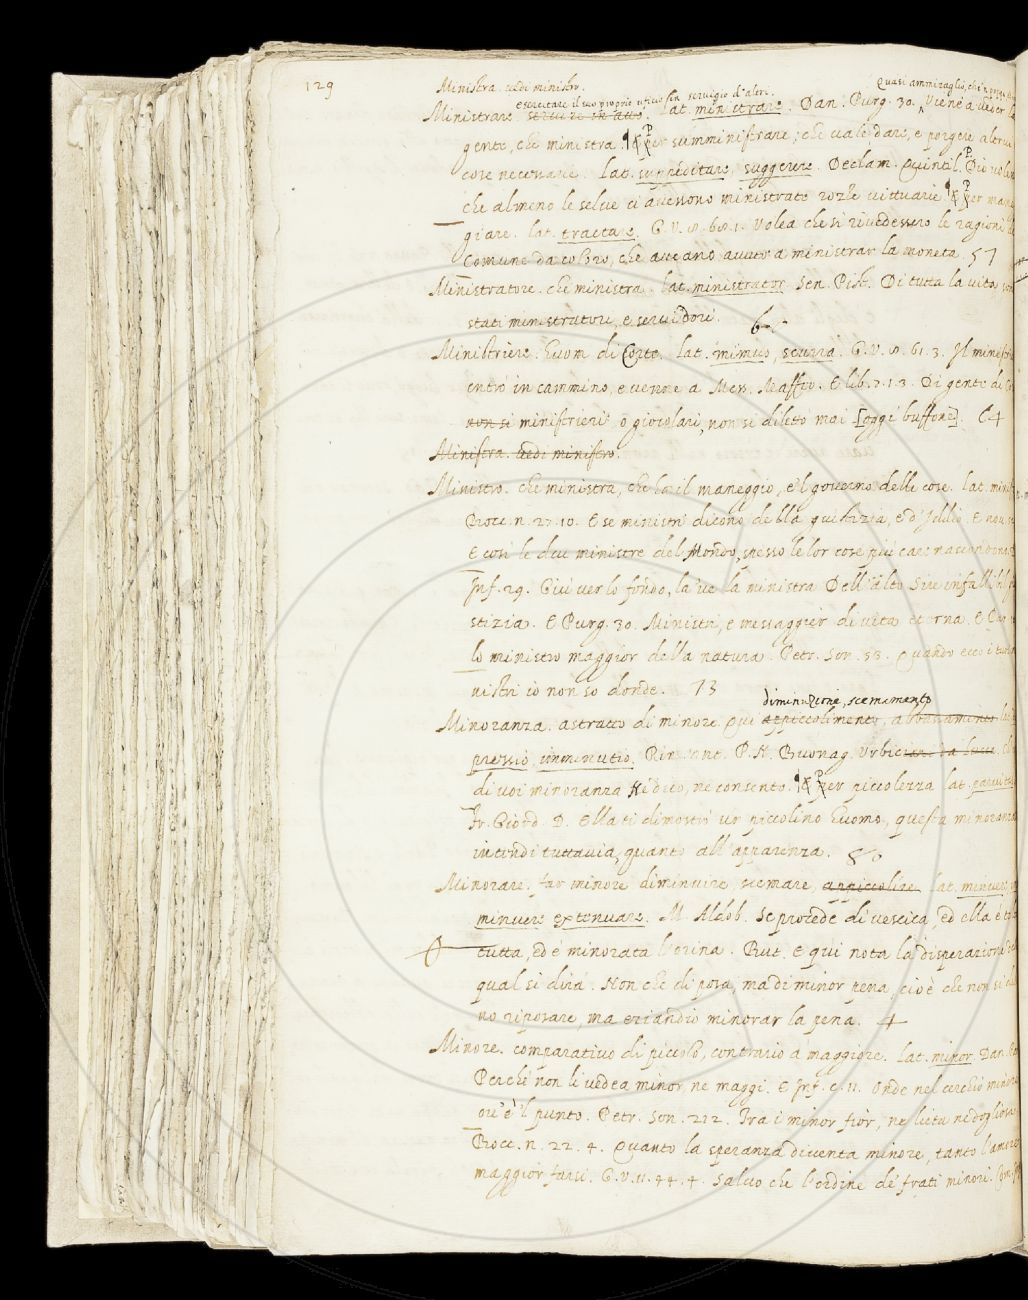 129
Ministra. vedi ministro.
esercitare il suo proprio uficio in servigio d'altri. Quasi ammiraglio, che'n poppa
Ministrare servire in atto. lat. ministrare. Dan. Purg. 30. Viene a veder la
gente, che ministra. ¶ Per sumministrare; che vale dare, e porgere altrui
cose necessarie. lat. suppeditare, suggerere. Declam. Quintil. P.
che almeno le selve ci avessono ministrato rozze vittuarie ¶ Per maneg
giare. lat. tractare. G. V. 8. 68. 1. Volea che si rivedessero le ragioni
Comune da coloro, che aveano avuto a ministrar la moneta. 57
Ministratore. che ministra. lat. ministrator. Sen. Pist. Di tutta la vita son
stati ministratori, e servidori.
Ministriere. Huom di Corte. lat. mimus, scurra. G. V. 8. 61. 3. Il ministrie
entrò in cammino, e venne a Mess. Maffeo. E lib. 7. 1. 3. Di gente di
non si ministrieri o giocolari, non si dilettò mai [oggi buffone]. 64
Ministra. vedi ministro.
Ministro. che ministra, che ha il maneggio, e'l governo delle cose. lat. minist
Bocc. n. 27. 10. E se ministri dicono della giustizia, e d'Iddio. E nou.
E così le due ministre del Mondo, spesso le lor cose più care nascondono
Inf. 29. Giù ver lo fondo, la 've la ministra Dell'alto Sire infallibil
stizia. E Purg. 30. Ministri, e messaggier di vita eterna. E
lo ministro maggior della natura. Petr. Son. 53. Quando ecco i tuoi
nistri io non so donde. 73
diminuzione, scemamento
Minoranza. astratto di minore. Qui appiccolimento, abbassamento
pressio, imminutio. Rim. ant. P. N. Buonag. Urbiciani da Lucca.
di voi minoranza Nè dico, ne consento. ¶ Per piccolezza lat. parvitas
Fr. Giord. D. Ella ti dimostrò un piccolino huomo, questa minoranza
intendi tuttavia, quanto all'apparenza. 80
Minorare. far minore diminuire, scemare, appiccolire. lat. minuere
minuere extenuare. M. Aldob. Se procede di vescica, ed ella è
tutta, ed è minorata l'orina. Rut. E qui nota la disperazione
qual si dirà. Non che di posa, ma di minor pena, cioè che non si
no riposare, ma eziandio minorar la pena. 4
Minore. comparativo di piccolo, contrario a maggiore. lat. minor. Dan.
Perchè non li vedea minor ne maggi. E Inf. c. 11. Onde nel cerchio minore
ov'è 'l punto. Petr. Son. 212. Fra i minor fior, ne lieta ne dogliosa
Bocc. n. 22. 4. Quanto la speranza diventa minore, tanto l'amore
maggior farsi. G. V. 11. 44. 4. Salvo che l'ordine de' frati minori.